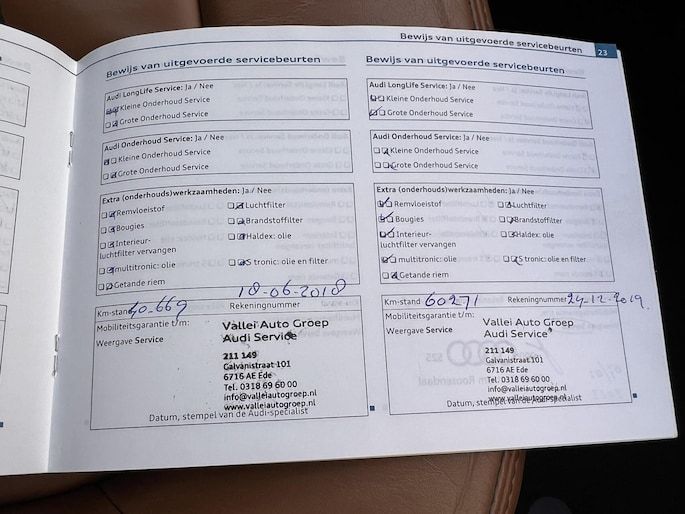 Bewijs van uitgevoerde servicebeurten 23
Bewijs van uitgevoerde servicebeurten
Audi LongLife Service: Ja / Nee
Kleine Onderhoud Service
Grote Onderhoud Service
Audi Onderhoud Service: Ja / Nee
Kleine Onderhoud Service
Grote Onderhoud Service
Extra (onderhouds)werkzaamheden: Ja / Nee
Remvloeistof Luchtfilter
Bougies Brandstoffilter
Interieur- Haldex: olie
luchtfilter vervangen
multitronic: olie S tronic: olie en filter
Getande riem
18-06-2018
Km-stand 40.669 Rekeningnummer
Mobiliteitsgarantie t/m:
Weergave Service
Vallei Auto Groep
Audi Service
211 149
Galvanistraat 101
6716 AE Ede
Tel. 0318 69 60 00
info@valleiautogroep.nl
www.valleiautogroep.nl
Datum, stempel van de Audi-specialist
Bewijs van uitgevoerde servicebeurten
Audi LongLife Service: Ja / Nee
Kleine Onderhoud Service
Grote Onderhoud Service
Audi Onderhoud Service: Ja / Nee
Kleine Onderhoud Service
Grote Onderhoud Service
Extra (onderhouds)werkzaamheden: Ja / Nee
Remvloeistof Luchtfilter
Bougies Brandstoffilter
Interieur- Haldex: olie
luchtfilter vervangen
multitronic: olie S tronic: olie en filter
Getande riem
Km-stand 60271 Rekeningnummer 24-12-2019.
Mobiliteitsgarantie t/m:
Weergave Service
Vallei Auto Groep
Audi Service
211 149
Galvanistraat 101
6716 AE Ede
Tel. 0318 69 60 00
info@valleiautogroep.nl
www.valleiautogroep.nl
Datum, stempel van de Audi-specialist